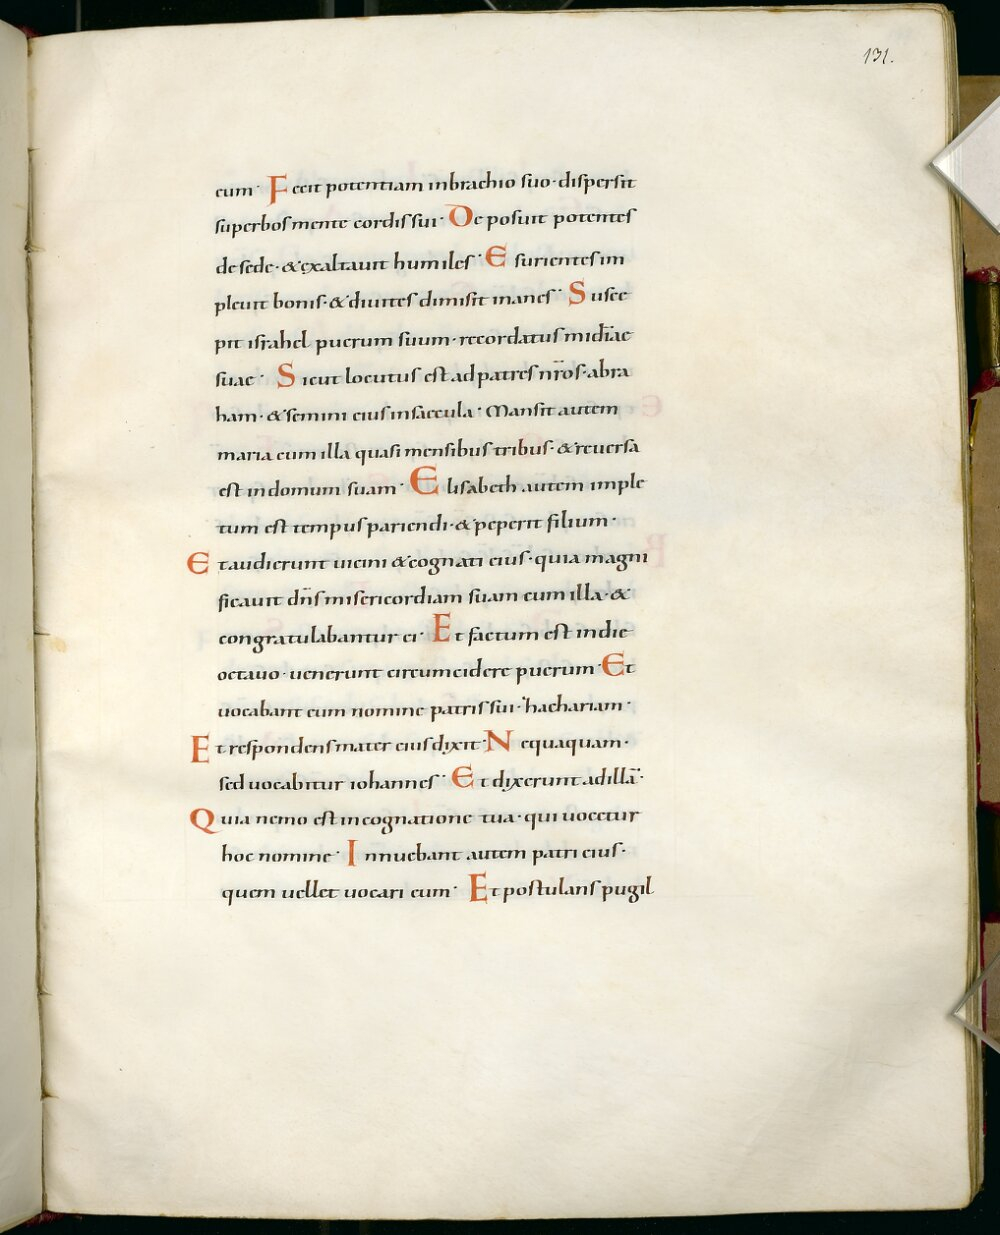 131.
eum· Fecit potentiam inbrachio suo· dispersit
superbos mente cordis sui· Deposuit potentes
desede· & exaltauit humiles· Esurientes im
pleuit bonis· & diuites dimisit inanes· Susce
pit israhel puerum suum· recordatus midiae
suae· Sicut locutus est ad patres nr̄os· abra
ham· & semini eius insaecula· Mansit autem
maria cum illa quasi mensibus tribus· & reuersa
est indomum suam· Elisabeth autem imple
tum est tempus pariendi· & peperit filium·
Et audierunt uicini & cognati eius· quia magni
ficauit dn̄s misericordiam suam cum illa· &
congratulabantur ei· Et factum est indie
octauo· uenerunt circumcidere puerum· Et
uocabant eum nomine patris sui· zachariam·
Et respondens mater eius dixit· Nequaquam·
sed uocabitur iohannes· Et dixerunt ad illā·
Quia nemo est incognatione tua· qui uocetur
hoc nomine· Innuebant autem patri eius·
quem uellet uocari eum· Et postulans pugil